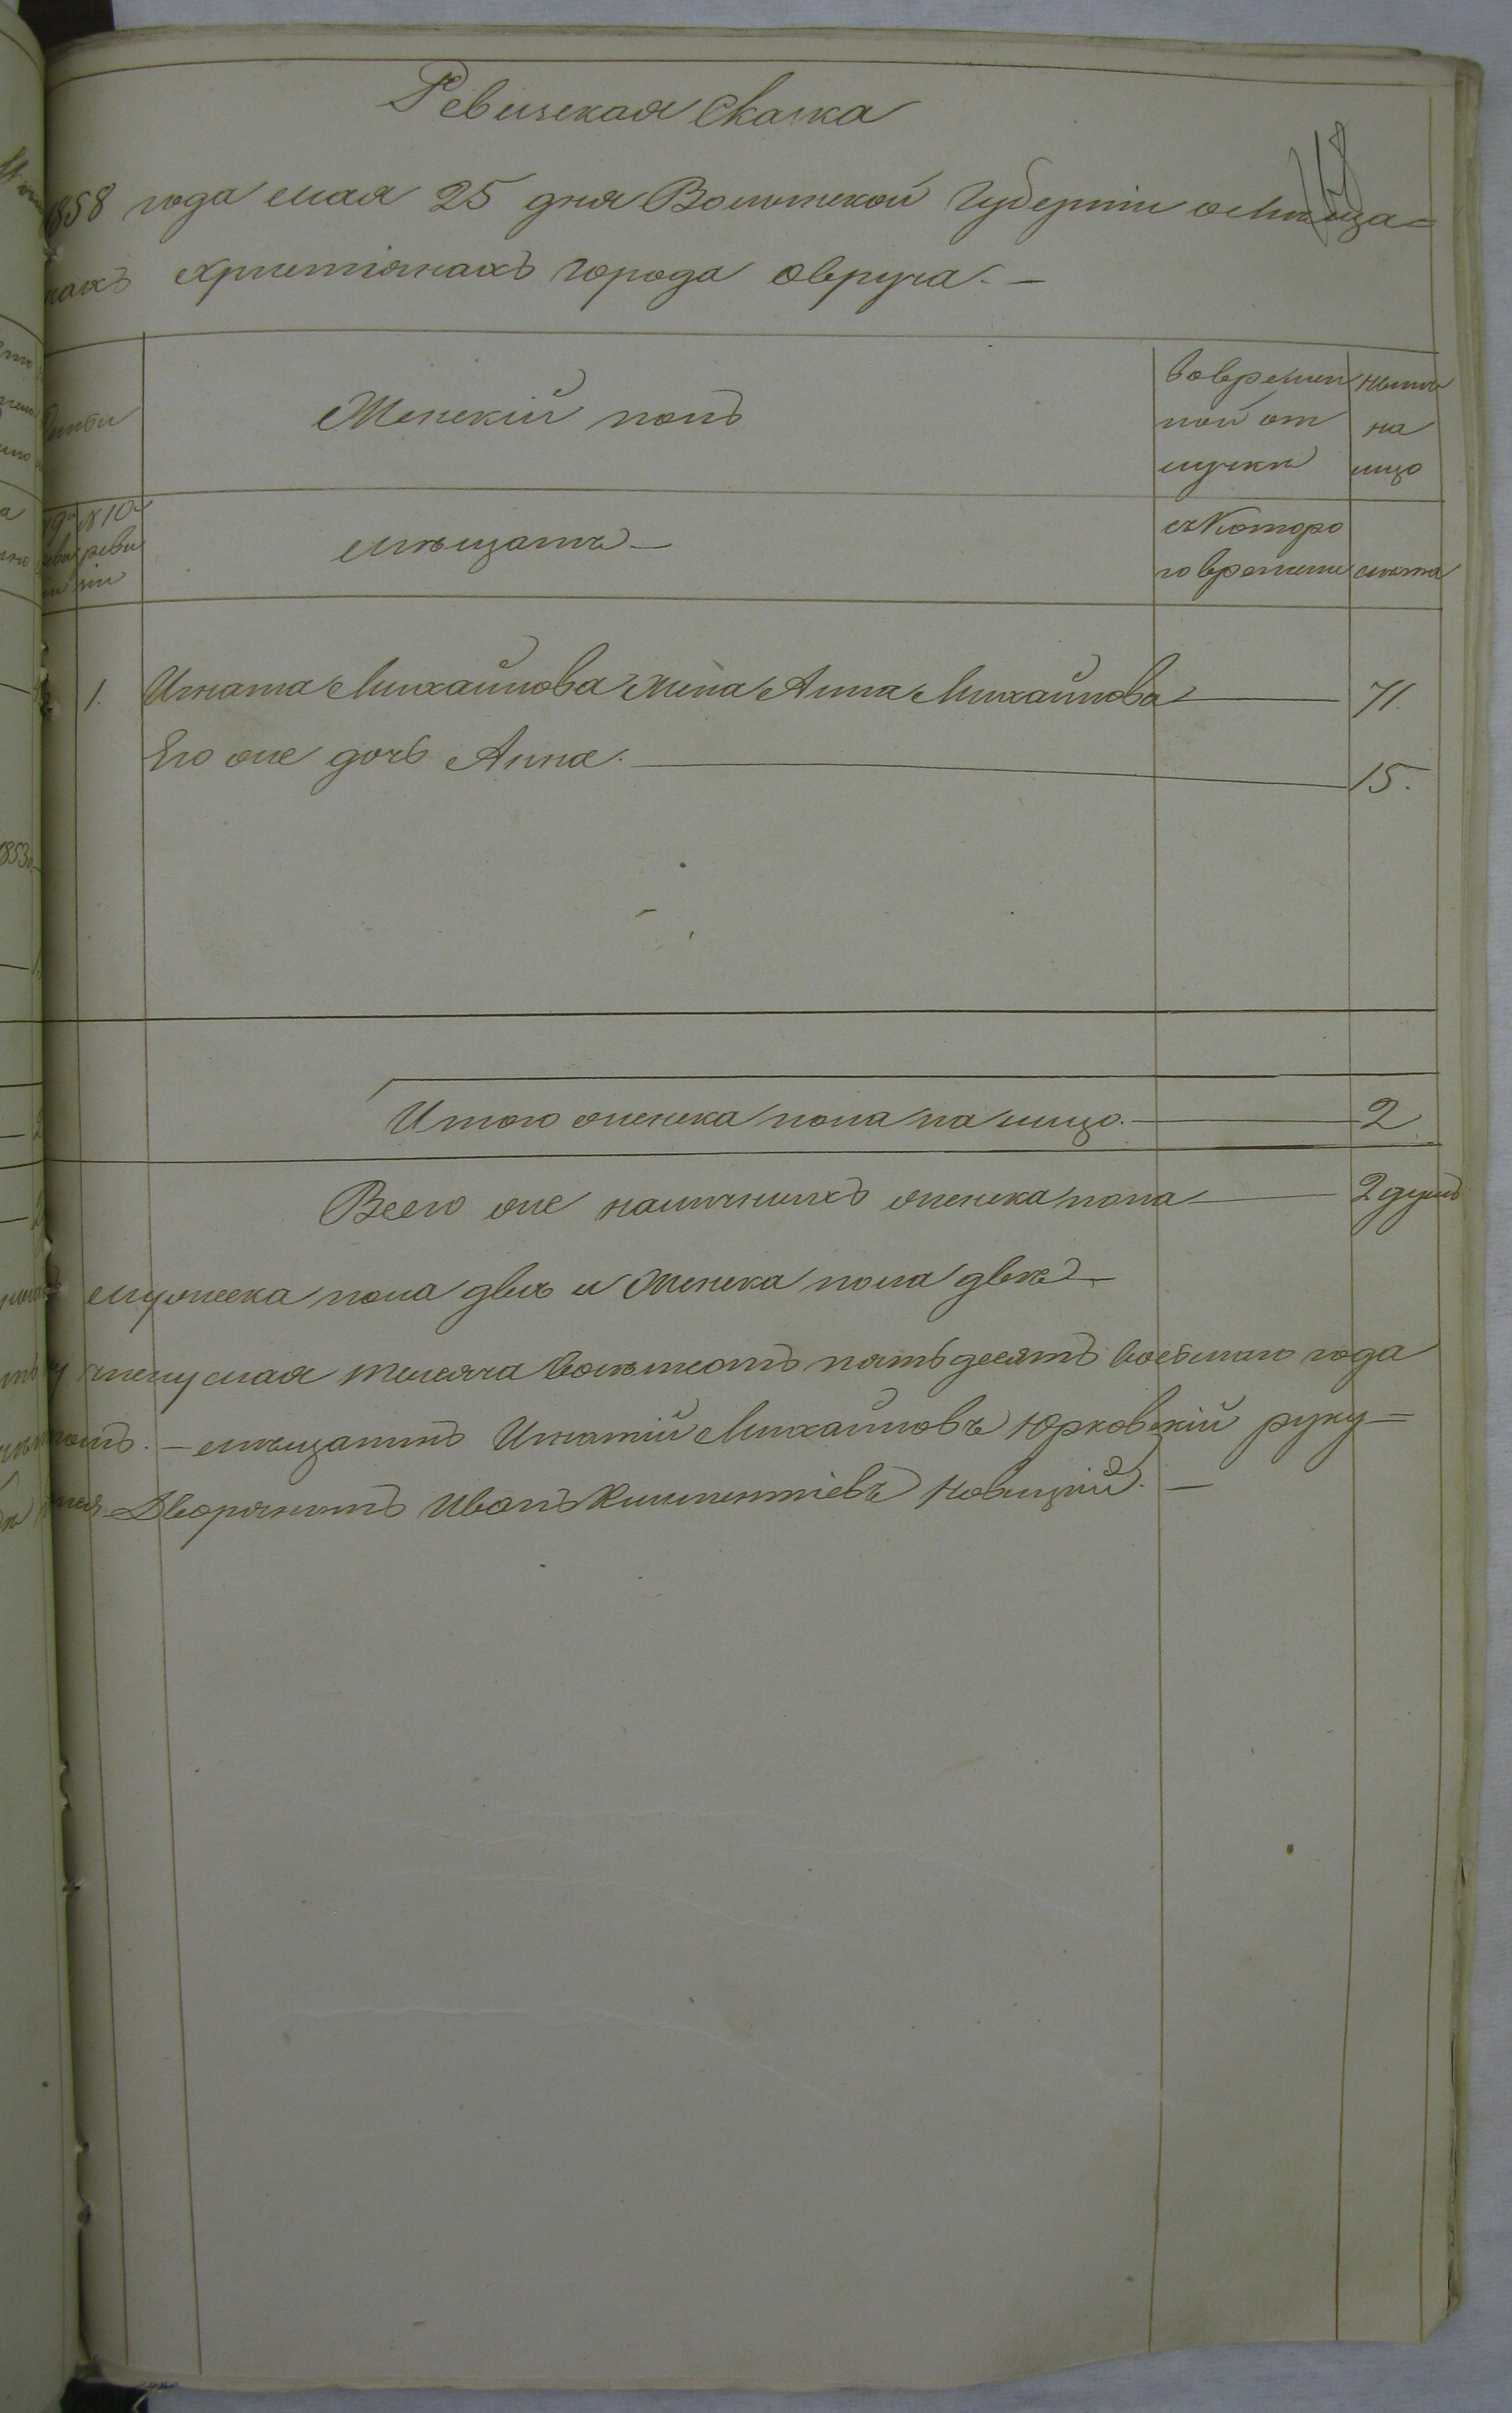 Ревизская Сказка
1858 года мая 25 дня Волынской Губерніи о мѣща=
нахъ христіянахъ города Овруча. —
Женскій полъ
Во времен
ной от
лучкѣ
нынѣ
на
лицо
9й
реви
зіи
№ 10й
реви
зіи
мѣщанъ —
съ Которо
го времени
лѣта
1. Игната Михайлова Жена Анна Михайлова — 71.
Его же дочь Анна. — 15.
Итого женска пола на лицо. — 2
Всего же наличныхъ женска пола — 2 душъ
мужеска пола двѣ и Женска пола двѣ —
мая тысяча восѣмсотъ пятьдесятъ восьмаго года
— мѣщанинъ Игнатій Михайловъ Юрковскій руку=
Дворянинъ Иванъ Климентіевъ Новицкій. —